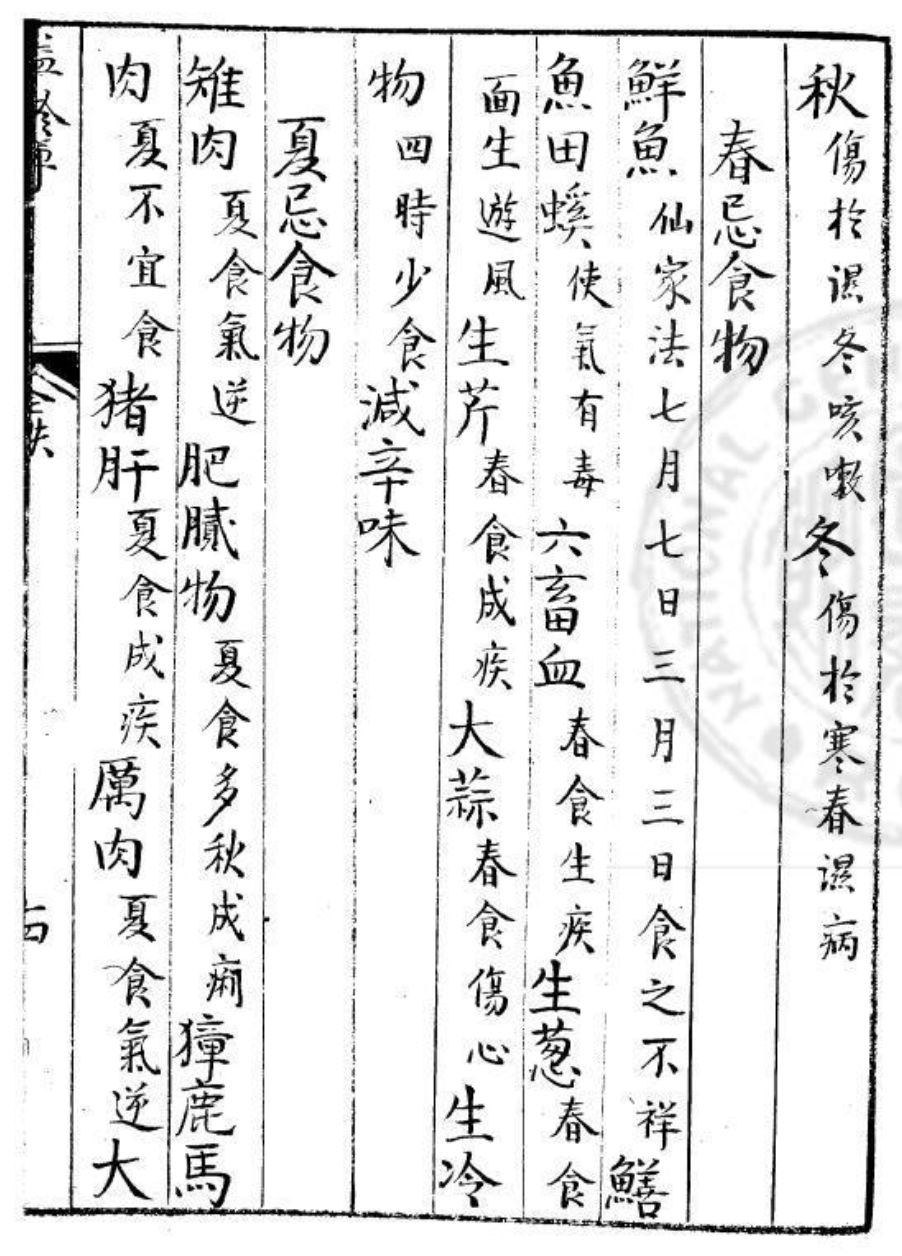 秋傷於濕冬咳嗽冬傷於寒春濕病
春忌食物
鮮魚仙家法七月七日三月三日食之不祥鱔
魚田螺使氣有毒六畜血春食生疾生葱春食
面生遊風生芹春食成疾大蒜春食傷心生冷
物四時少食減辛味
夏忌食物
雉肉夏食氣逆肥膩物夏食多秋成痢獐鹿馬
肉夏不宜食猪肝夏食成疾厲肉夏食氣逆大
NATIONAL CEN